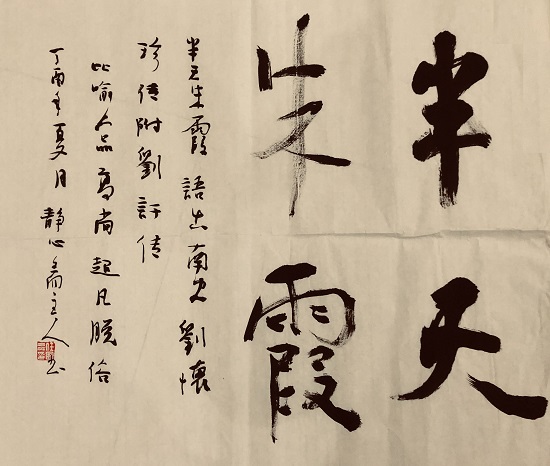 半天
朱霞
半天朱霞 語出南史劉懷
珍傳附劉訏传
比喻人品高尚超凡脱俗
丁酉年夏月 静心斋主人书